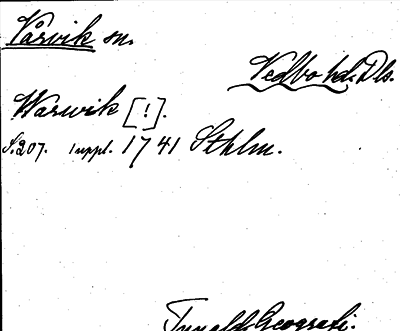 Vårvik sn.
Vedbo hd. Dls.
Warwik [!].
S. 207. suppl. 1741 Sthlm.
Tunelds Geografi.